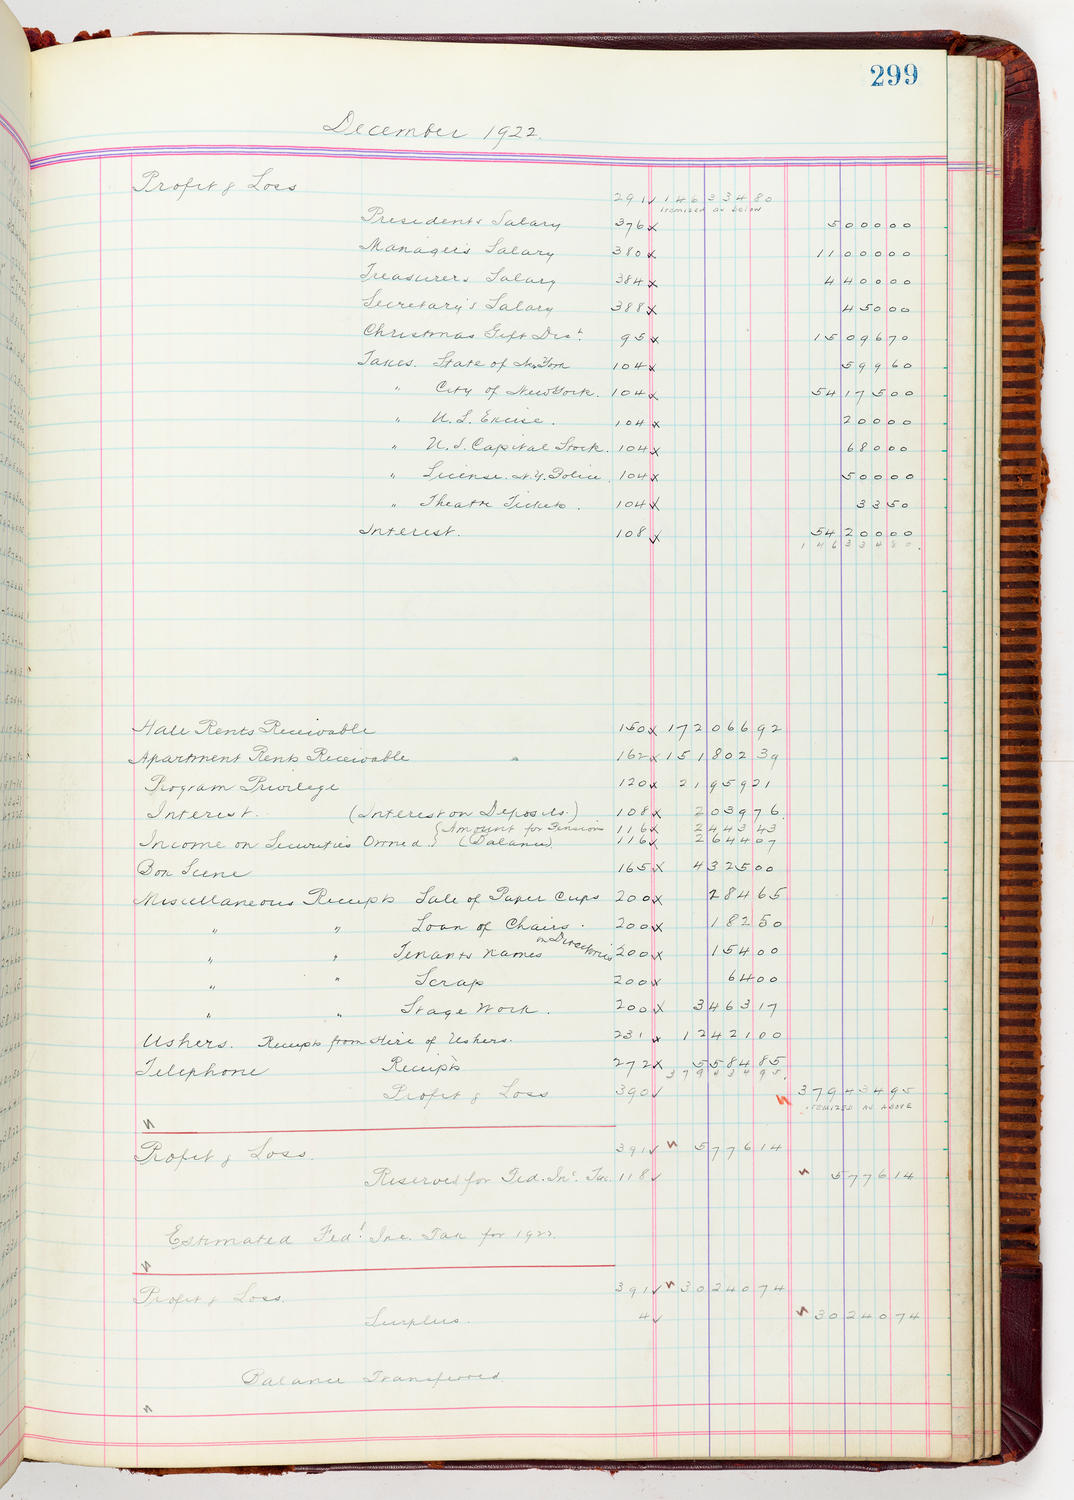 299
December 1922.
Profit & Loss 291 14633480
Itemized as below
Presidents Salary 376 500000
Manager's Salary 380 1100000
Treasurers Salary 384 440000
Secretary's Salary 388 45000
Christmas Gift Dist. 95 1509670
Taxes. State of New York 104 59960
" City of New York. 104 5417500
" U.S. Excise. 104 20000
" U.S. Capital Stock. 104 68000
" License. N.Y. Police. 104 50000
" Theatre Tickets. 104 3350
Interest. 108 5420000
14633480.
Hall Rents Receivable 150 17206692
Apartment Rents Receivable 162 15180239
Program Privilege 120 2195921
Interest. (Interest on Deposits.) 108 203976
(Amount for Pensions 116 244343
Income on Securities Owned. (Balance) 116 264407
Box Scene 165 432500
Miscellaneous Receipts Sale of Paper Cups 200 28465
" " Loan of Chairs. 200 18250
" " Tenants names on Directories 200 15400
" " Scrap 200 6400
" " Stage Work. 200 346317
Ushers. Receipts from Hire of Ushers. 231 1242100
Telephone Receipts 272 558485
37943495.
Profit & Loss 390 37943495
Itemized as above
Profit & Loss. 391 577614
Reserves for Fed. Inc. Tax. 118 577614
Estimated Fed'l Inc. Tax for 1922.
Profit & Loss. 391 3024074
Surplus. 4 3024074
Balance Transferred